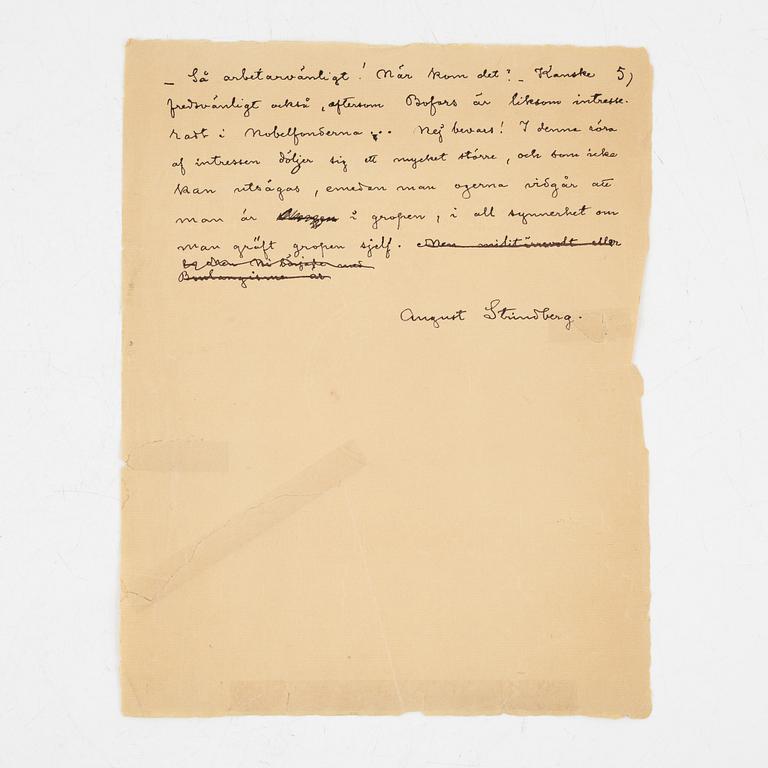 – Så arbetarvänligt! När kom det? – Kanske 5)
fredsvänligt också, eftersom Bofors är liksom intresse-
radt i Nobelfonderna ... Nej bevars! I denna röra
af intressen döljer sig ett mycket större, och som icke
kan utsägas, emedan man ogerna vidgår att
man är i gropen, i all synnerhet om
man gräft gropen sjelf. Men eller
med
Boulangismen är
August Strindberg.